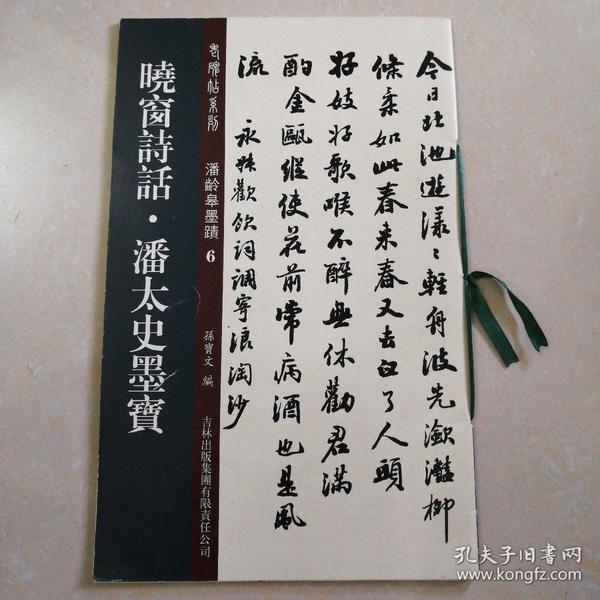 曉窗詩話·潘太史墨寶
老碑帖系列
潘齡皋墨蹟 6
孫寶文 編
吉林出版集團有限責任公司
今日北池遊漾々輕舟波光瀲灩柳
條柔如此春来春又去白了人頭
好妓好歌喉不醉無休勸君滿
酌金甌縱使花前常病酒也是風
流
永叔歡飲詞調寄浪淘沙
孔夫子旧書网
www.kongfz.com